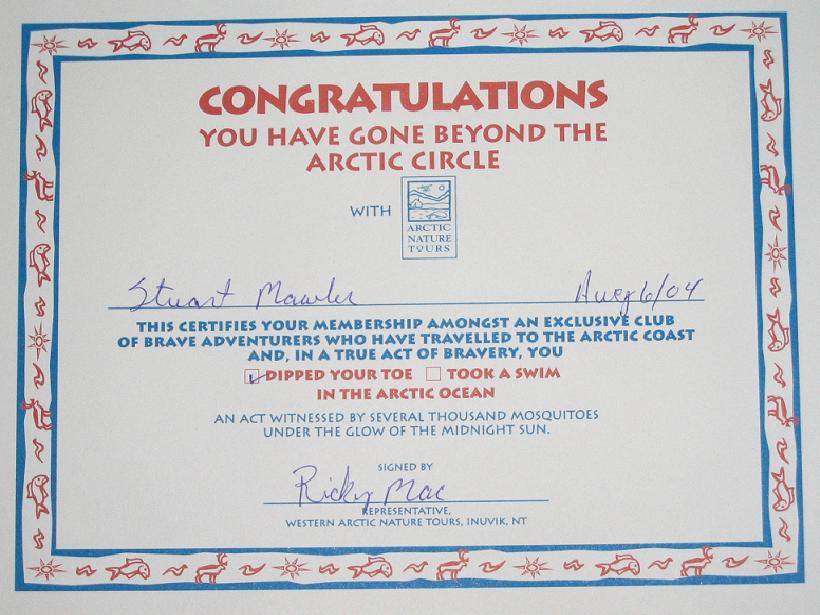 CONGRATULATIONS
YOU HAVE GONE BEYOND THE
ARCTIC CIRCLE
WITH
ARCTIC
NATURE
TOURS
Stuart Mawler Aug 6/04
THIS CERTIFIES YOUR MEMBERSHIP AMONGST AN EXCLUSIVE CLUB
OF BRAVE ADVENTURERS WHO HAVE TRAVELLED TO THE ARCTIC COAST
AND, IN A TRUE ACT OF BRAVERY, YOU
DIPPED YOUR TOE TOOK A SWIM
IN THE ARCTIC OCEAN
AN ACT WITNESSED BY SEVERAL THOUSAND MOSQUITOES
UNDER THE GLOW OF THE MIDNIGHT SUN.
SIGNED BY
Ricky Mac
REPRESENTATIVE,
WESTERN ARCTIC NATURE TOURS, INUVIK, NT